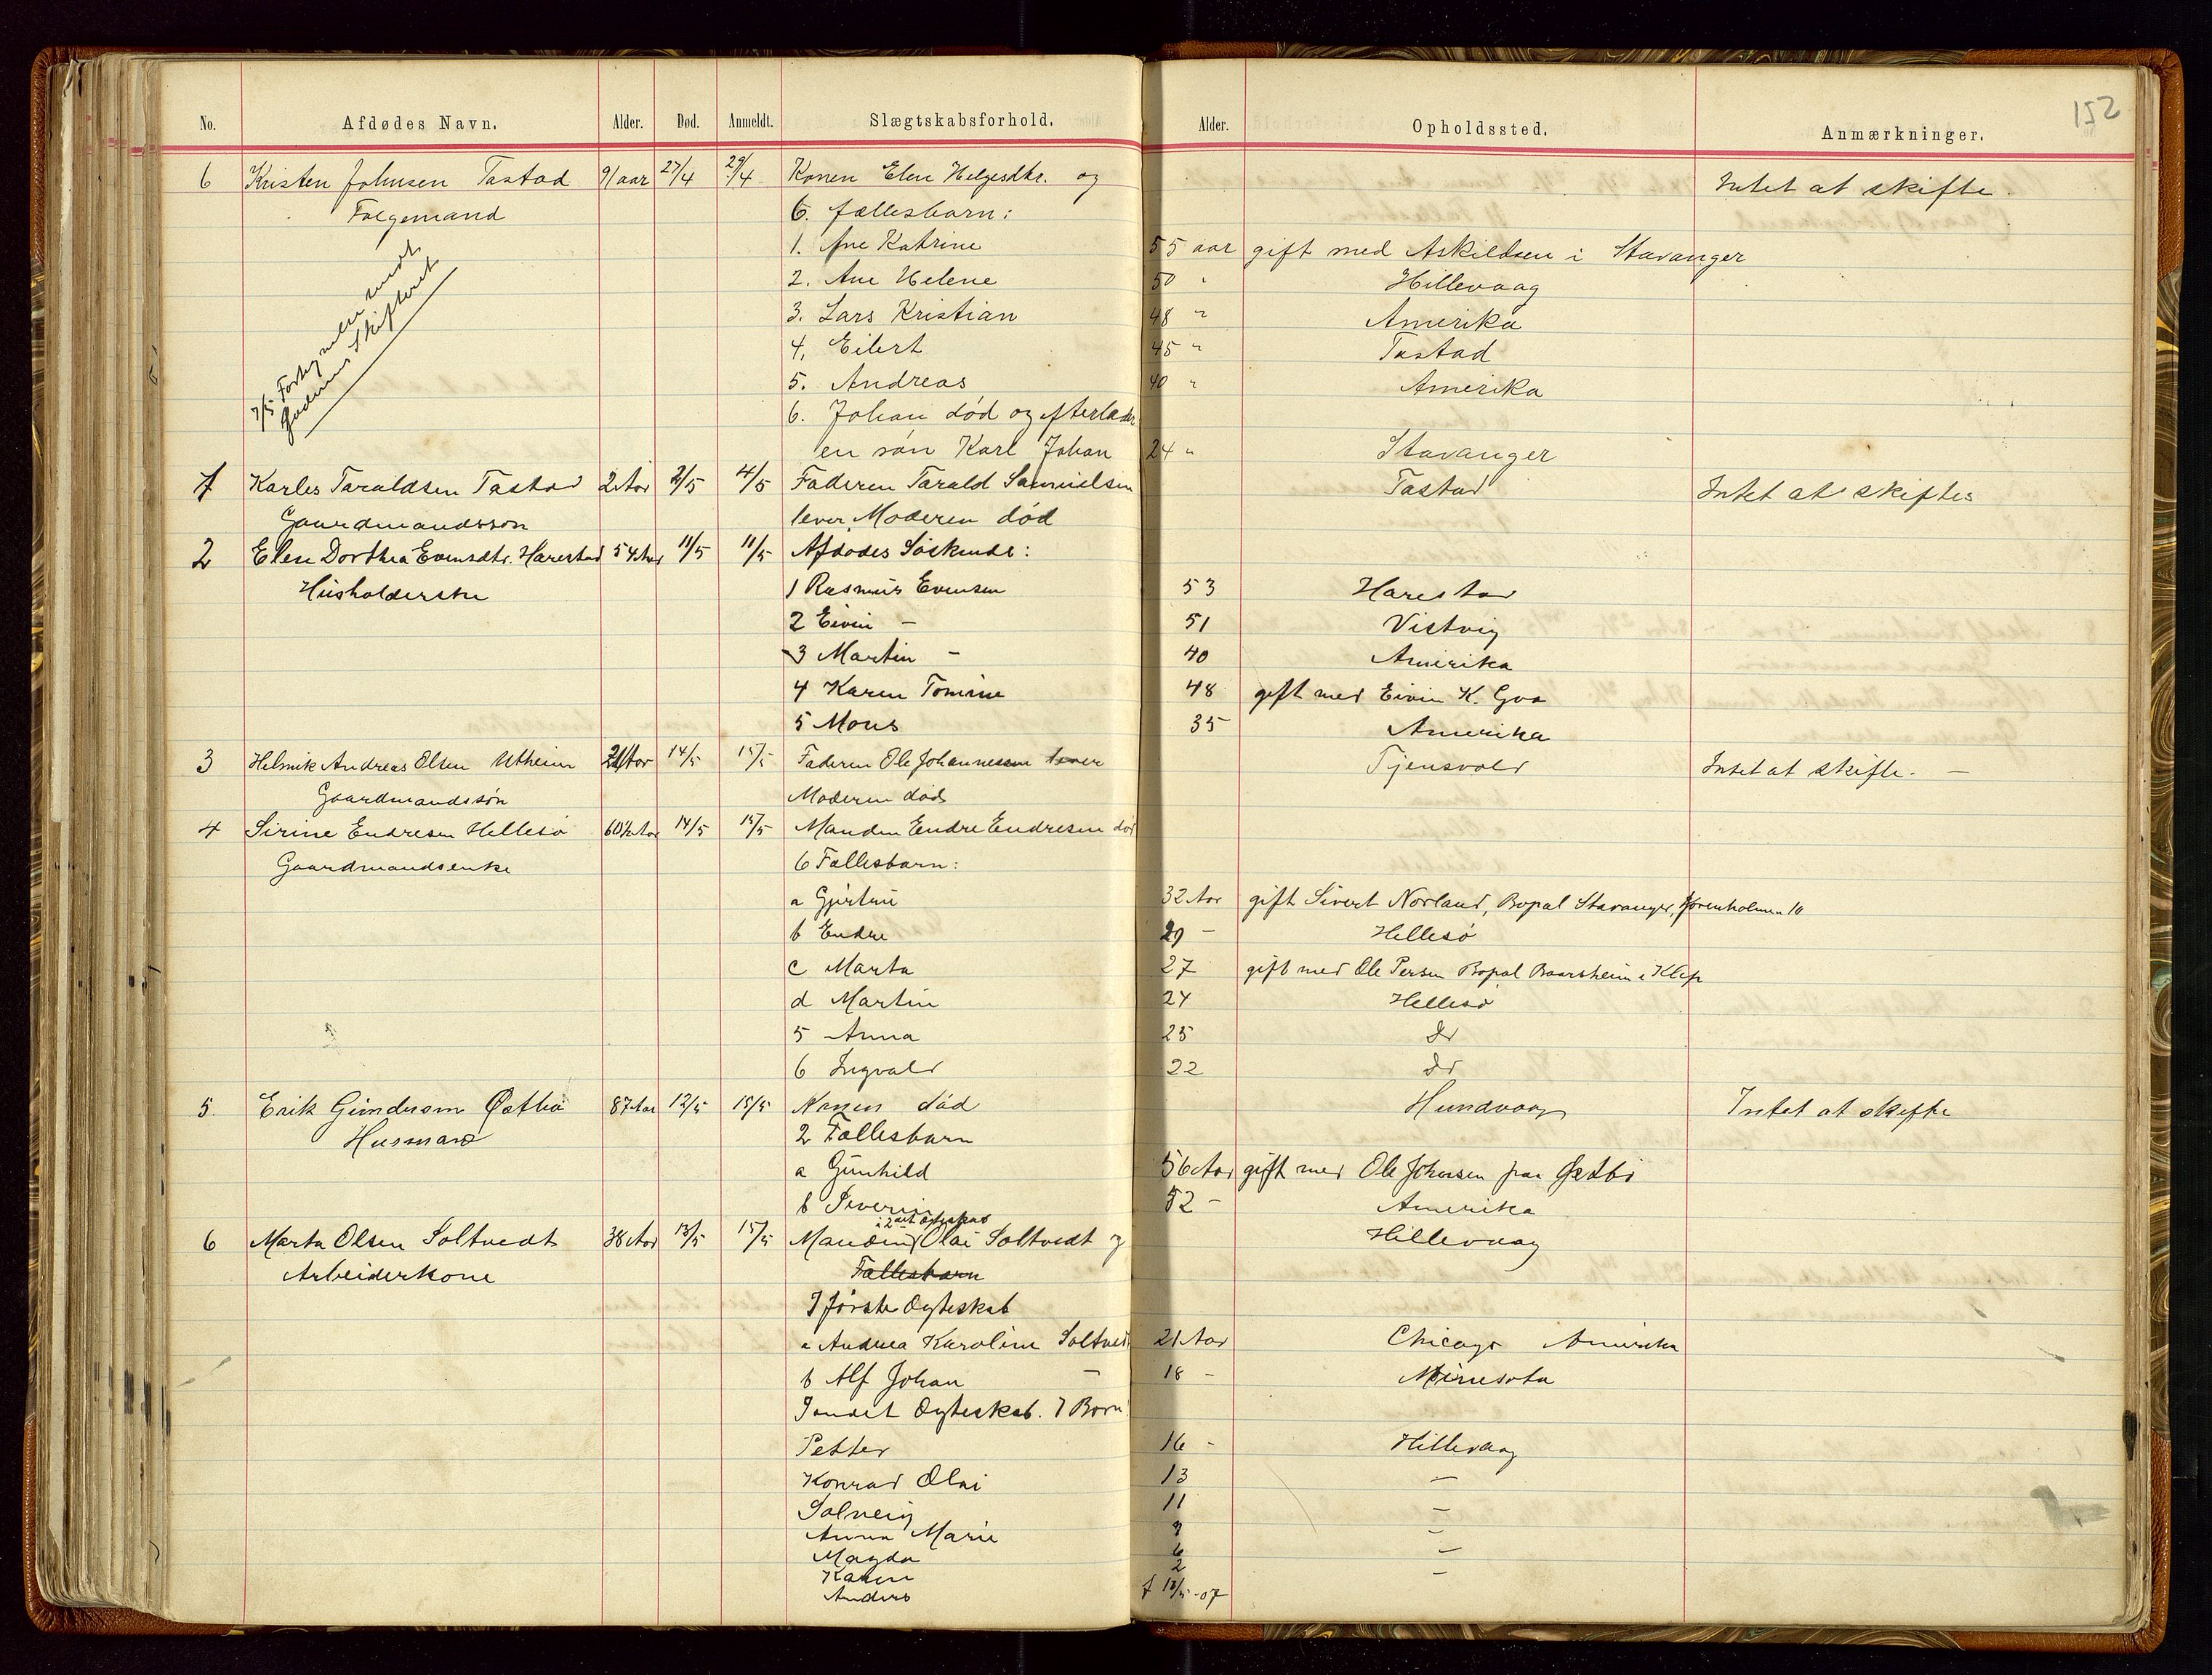 152
No. Afdødes Navn. Alder. Død. Anmeldt. Slægtskabsforhold. Alder. Opholdssted. Anmærkninger.
6 Kristen Johnsen Tastad 91 aar 27/4 29/4 Konen Elen Helgesdtr. og Intet at skifte.
Folgemand 6. fællesbarn:
1. Ane Katrine 55 aar gift med Askildsen i Stavanger
2. Ane Helene 50 " Hillevaag
3. Lars Kristian 48 " Amerika
4. Eilert 45 " Tastad
5. Andreas 40 " Amerika
7/5
6. Johan død og efterlader
en søn Karl Johan 24 " Stavanger
1 Karles Taraldsen Tastad 2 Aar 2/5 4/5 Faderen Tarald Samuelsen Tastad Intet at skiftes
Gaardmandssøn lever Moderen død
2 Elen Dorthea Evensdtr. Harestad 54 Aar 11/5 11/5 Afdødes Søskende:
Husholderske 1 Rasmus Evensen 53 Harestad
2 Eivin — 51 Vistvig
3 Martin — 40 Amerika
4 Karen Tomine 48 gift med Eivin K. Goa
5 Mons 35 Amerika
3 Helmik Andreas Olsen Utheim 21 Aar 14/5 15/5 Faderen Ole Johannessen lever Tjensvold Intet at skifte. —
Gaardmandssøn Moderen død
4 Sirine Endresen Hellesø 60½ Aar 14/5 15/5 Manden Endre Endresen død
Gaardmandsenke 6 Fællesbarn:
a Gjertine 32 Aar gift Sivert Norland, Bopal Stavanger,
b Endre 29 — Hellesø
c Marta 27 gift med Ole Persen Bopal Baarsheim i Klep
d Martin 24 Hellesø
5 Anna 25 do
6 Ingvald 22 do
5. Erik Gundersen Østbø 87 Aar 12/5 15/5 Konen død Hundvaag Intet at skifte
Husmand 2 Fællesbarn
a Gunhild 56 Aar gift med Ole Johnsen paa Østbø
b Severin 52 — Amerika
i 2det Ægteskab
6 Marta Olsen Soltvedt 38 Aar 13/5 15/5 Manden Olai Soltvedt og Hillevaag
Arbeiderkone Fællesbarn
I første Ægteskab
a Andrea Karoline Soltvedt 21 Aar Chicago Amerika
b Alf Johan — 18 — Minesota
I andet Ægteskab. 7 Børn
Petter 16 — Hillevaag
Konrad Olai 13 —
Solveig 11 —
Anna Marie 9 —
Magda 6 —
Karen 2 —
Anders f 13/5-07